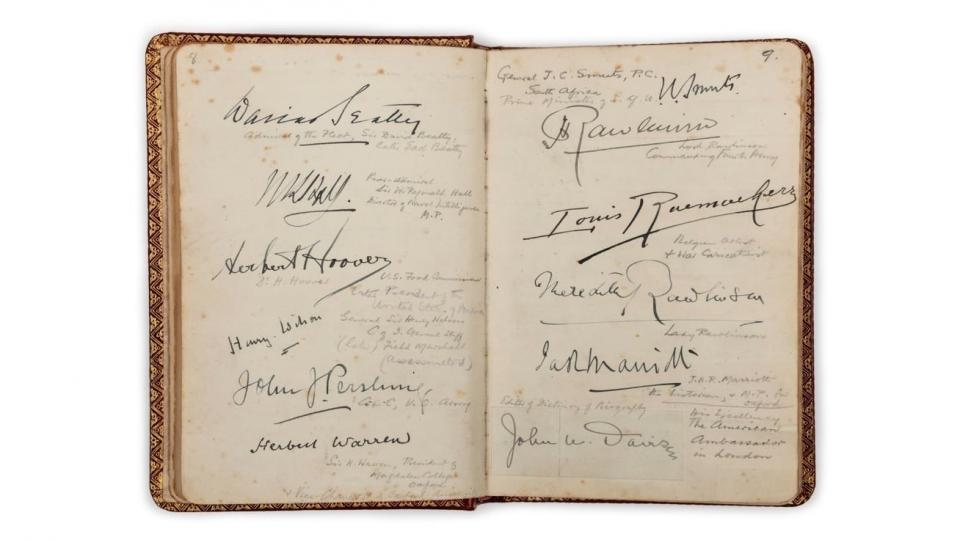 8
David Beatty
Admiral of the Fleet, Sir David Beatty.
Later Earl Beatty
W R Hall.
Rear-Admiral
Sir W. Reginald Hall
Director of Naval Intelligence
M.P.
Herbert Hoover
Dr. H. Hoover
U.S. Food
Later President of the
United States of America
Henry Wilson
General Sir Henry Wilson
C of I. General Staff
(Later) Field Marshall
(Assassinated)
John J Pershing
C in C, U.S. Army
Herbert Warren
Sir H. Warren, President of
Magdalen College
Oxford
& Vice Chancellor of Oxford
9.
General J. C. Smuts, P.C.
South Africa
Prime Minister of
Smuts.
Rawlinson
Lord Rawlinson
Commanding Fourth Army
Louis Raemaekers
Belgian Artist
& War Caricaturist
Meredith Rawlinson
Lady Rawlinson
J A R Marriott
J.A.R. Marriott
the historian, & M.P. for
Oxford
Editor of Dictionary of Biography
John W. Davis
His Excellency
The American
Ambassador
in London